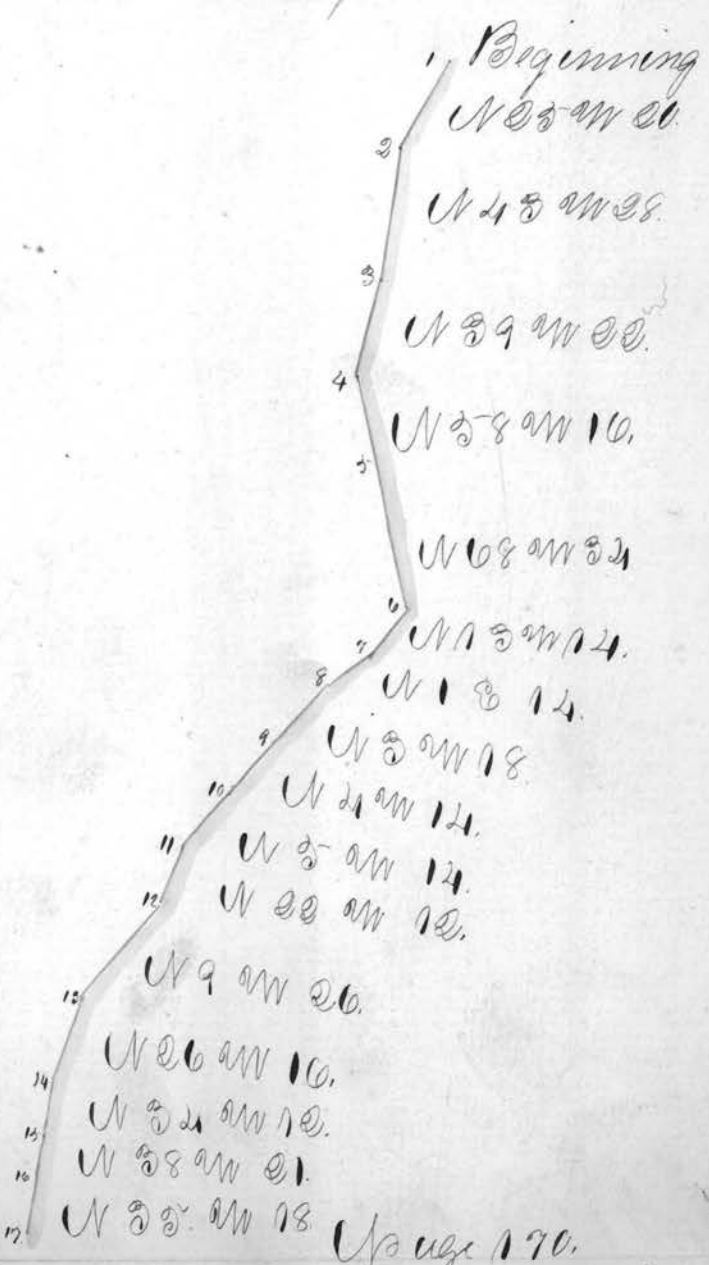 1 Beginning
N 25 W 20.
2
N 43 W 28.
3
N 39 W 22.
4
N 58 W 16.
5
N 68 W 34
6
N 13 W 14.
7
N 1 E 14.
8
N 3 W 18
9
N 4 W 14.
10
N 5 W 14.
11
N 22 W 12.
12
N 9 W 26.
13
N 26 W 16.
14
N 34 W 12.
15
N 38 W 21.
16
N 35. W 18
17.
Page 170.